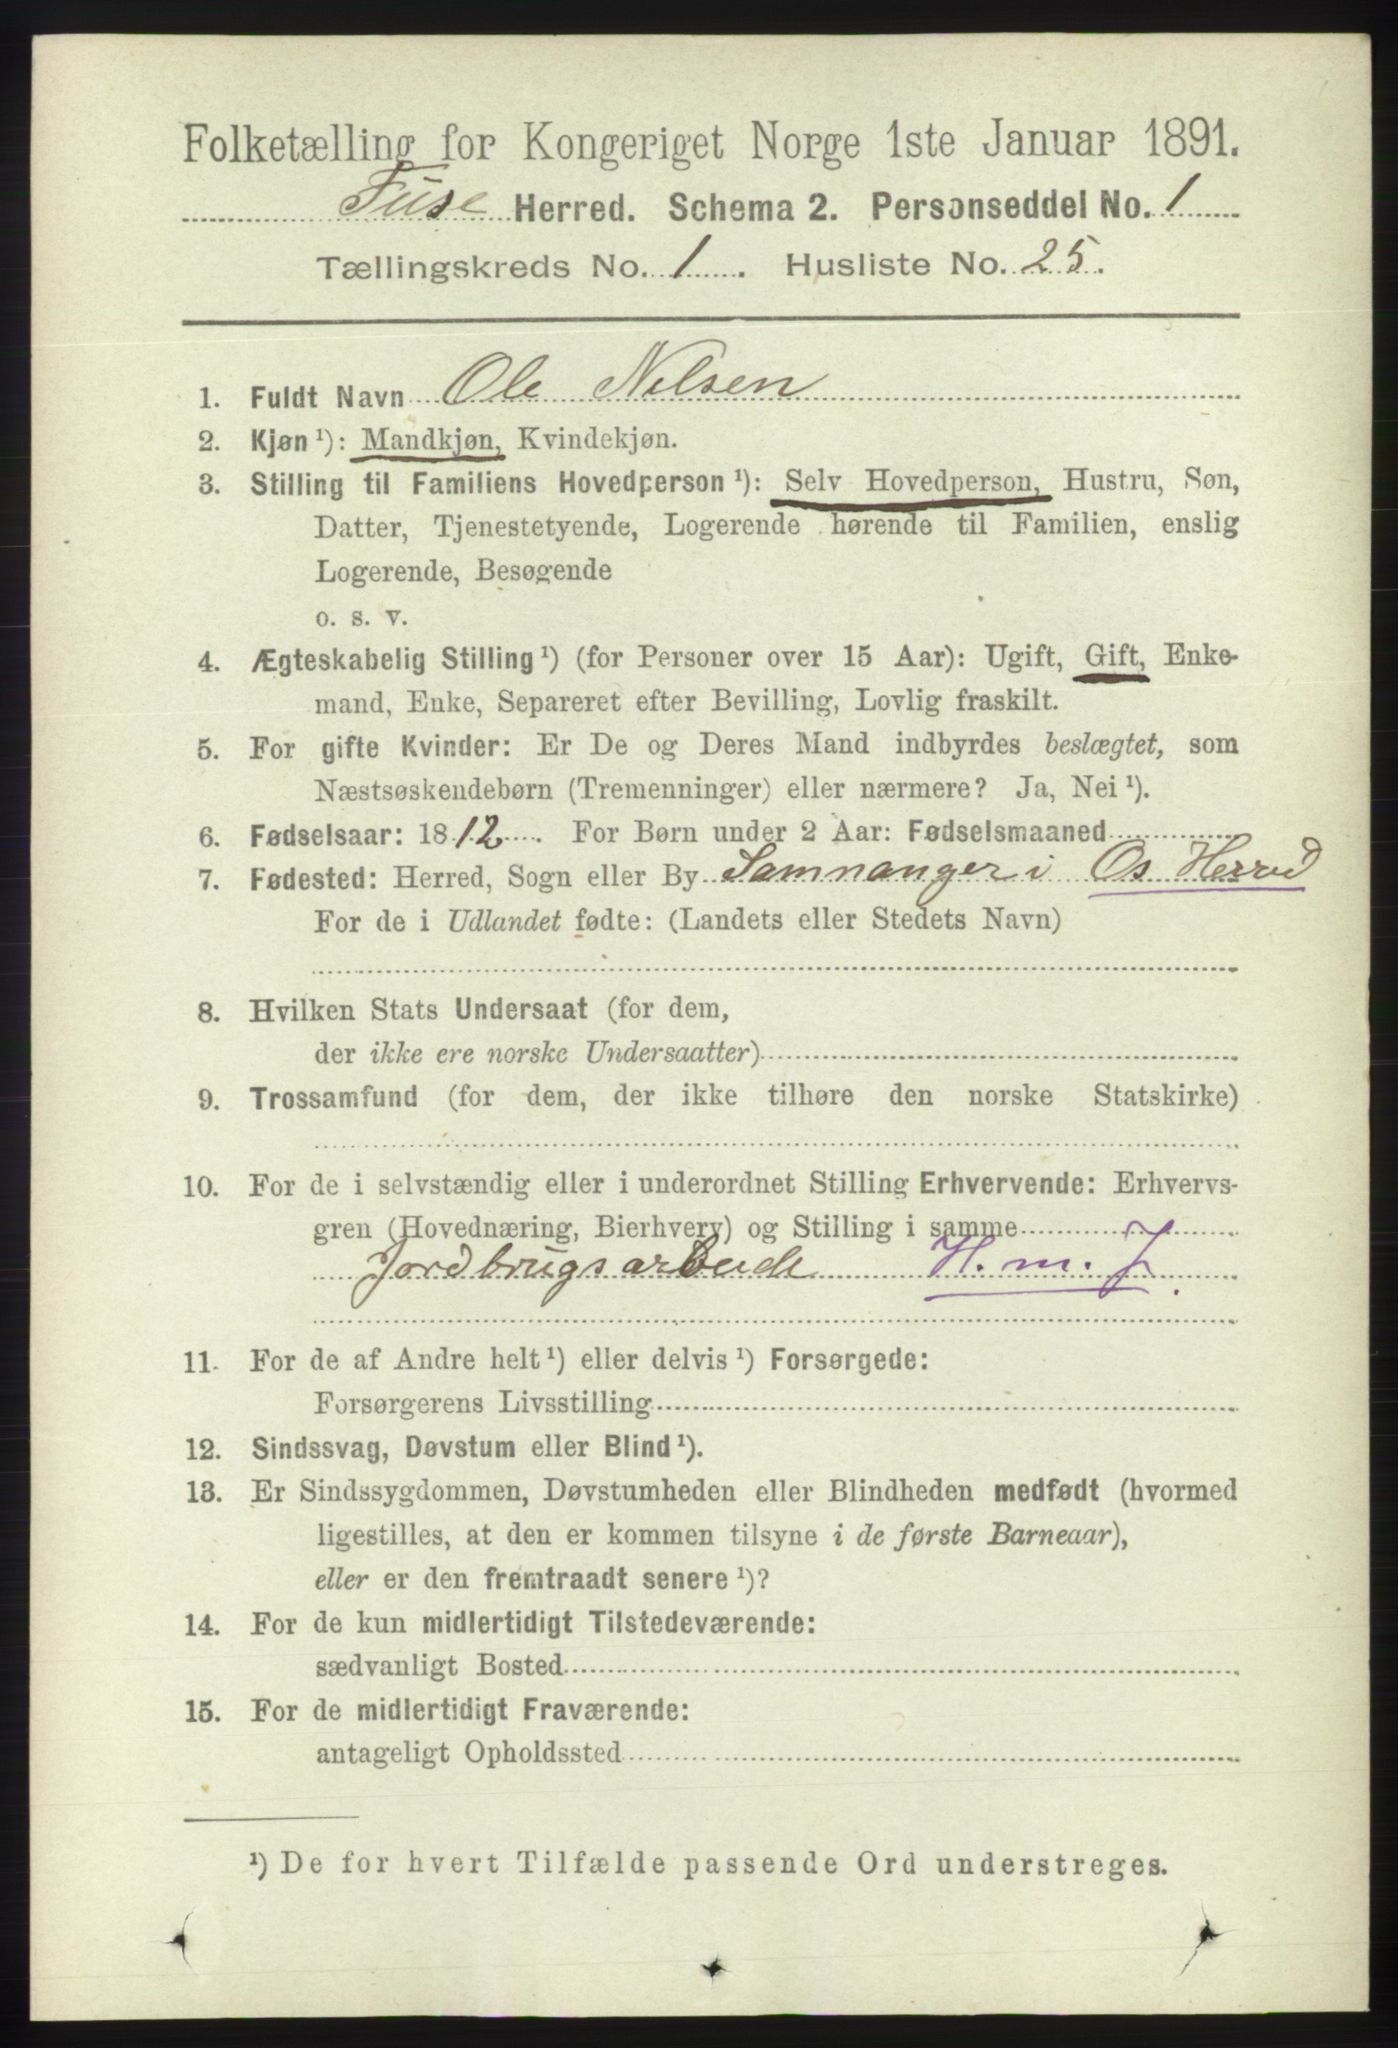 Folketælling for Kongeriget Norge 1ste Januar 1891.
Fuse Herred. Schema 2. Personseddel No. 1
Tællingskreds No. 1. Husliste No. 25.
1. Fuldt Navn Ole Nilsen
2. Kjøn ¹): Mandkjøn, Kvindekjøn.
3. Stilling til Familiens Hovedperson ¹): Selv Hovedperson, Hustru, Søn,
Datter, Tjenestetyende, Logerende hørende til Familien, enslig
Logerende, Besøgende
o. s. v.
4. Ægteskabelig Stilling ¹) (for Personer over 15 Aar): Ugift, Gift, Enke-
mand, Enke, Separeret efter Bevilling, Lovlig fraskilt.
5. For gifte Kvinder: Er De og Deres Mand indbyrdes beslægtet, som
Næstsøskendebørn (Tremenninger) eller nærmere? Ja, Nei ¹).
6. Fødselsaar: 1812. For Børn under 2 Aar: Fødselsmaaned
7. Fødested: Herred, Sogn eller By Samnanger i Os Herred
For de i Udlandet fødte: (Landets eller Stedets Navn)
8. Hvilken Stats Undersaat (for dem,
der ikke ere norske Undersaatter)
9. Trossamfund (for dem, der ikke tilhøre den norske Statskirke)
10. For de i selvstændig eller i underordnet Stilling Erhvervende: Erhvervs-
gren (Hovednæring, Bierhverv) og Stilling i samme
Jordbrugsarbeide H. m. J.
11. For de af Andre helt ¹) eller delvis ¹) Forsørgede:
Forsørgerens Livsstilling
12. Sindssvag, Døvstum eller Blind ¹).
13. Er Sindssygdommen, Døvstumheden eller Blindheden medfødt (hvormed
ligestilles, at den er kommen tilsyne i de første Barneaar),
eller er den fremtraadt senere ¹)?
14. For de kun midlertidigt Tilstedeværende:
sædvanligt Bosted
15. For de midlertidigt Fraværende:
antageligt Opholdssted
¹) De for hvert Tilfælde passende Ord understreges.